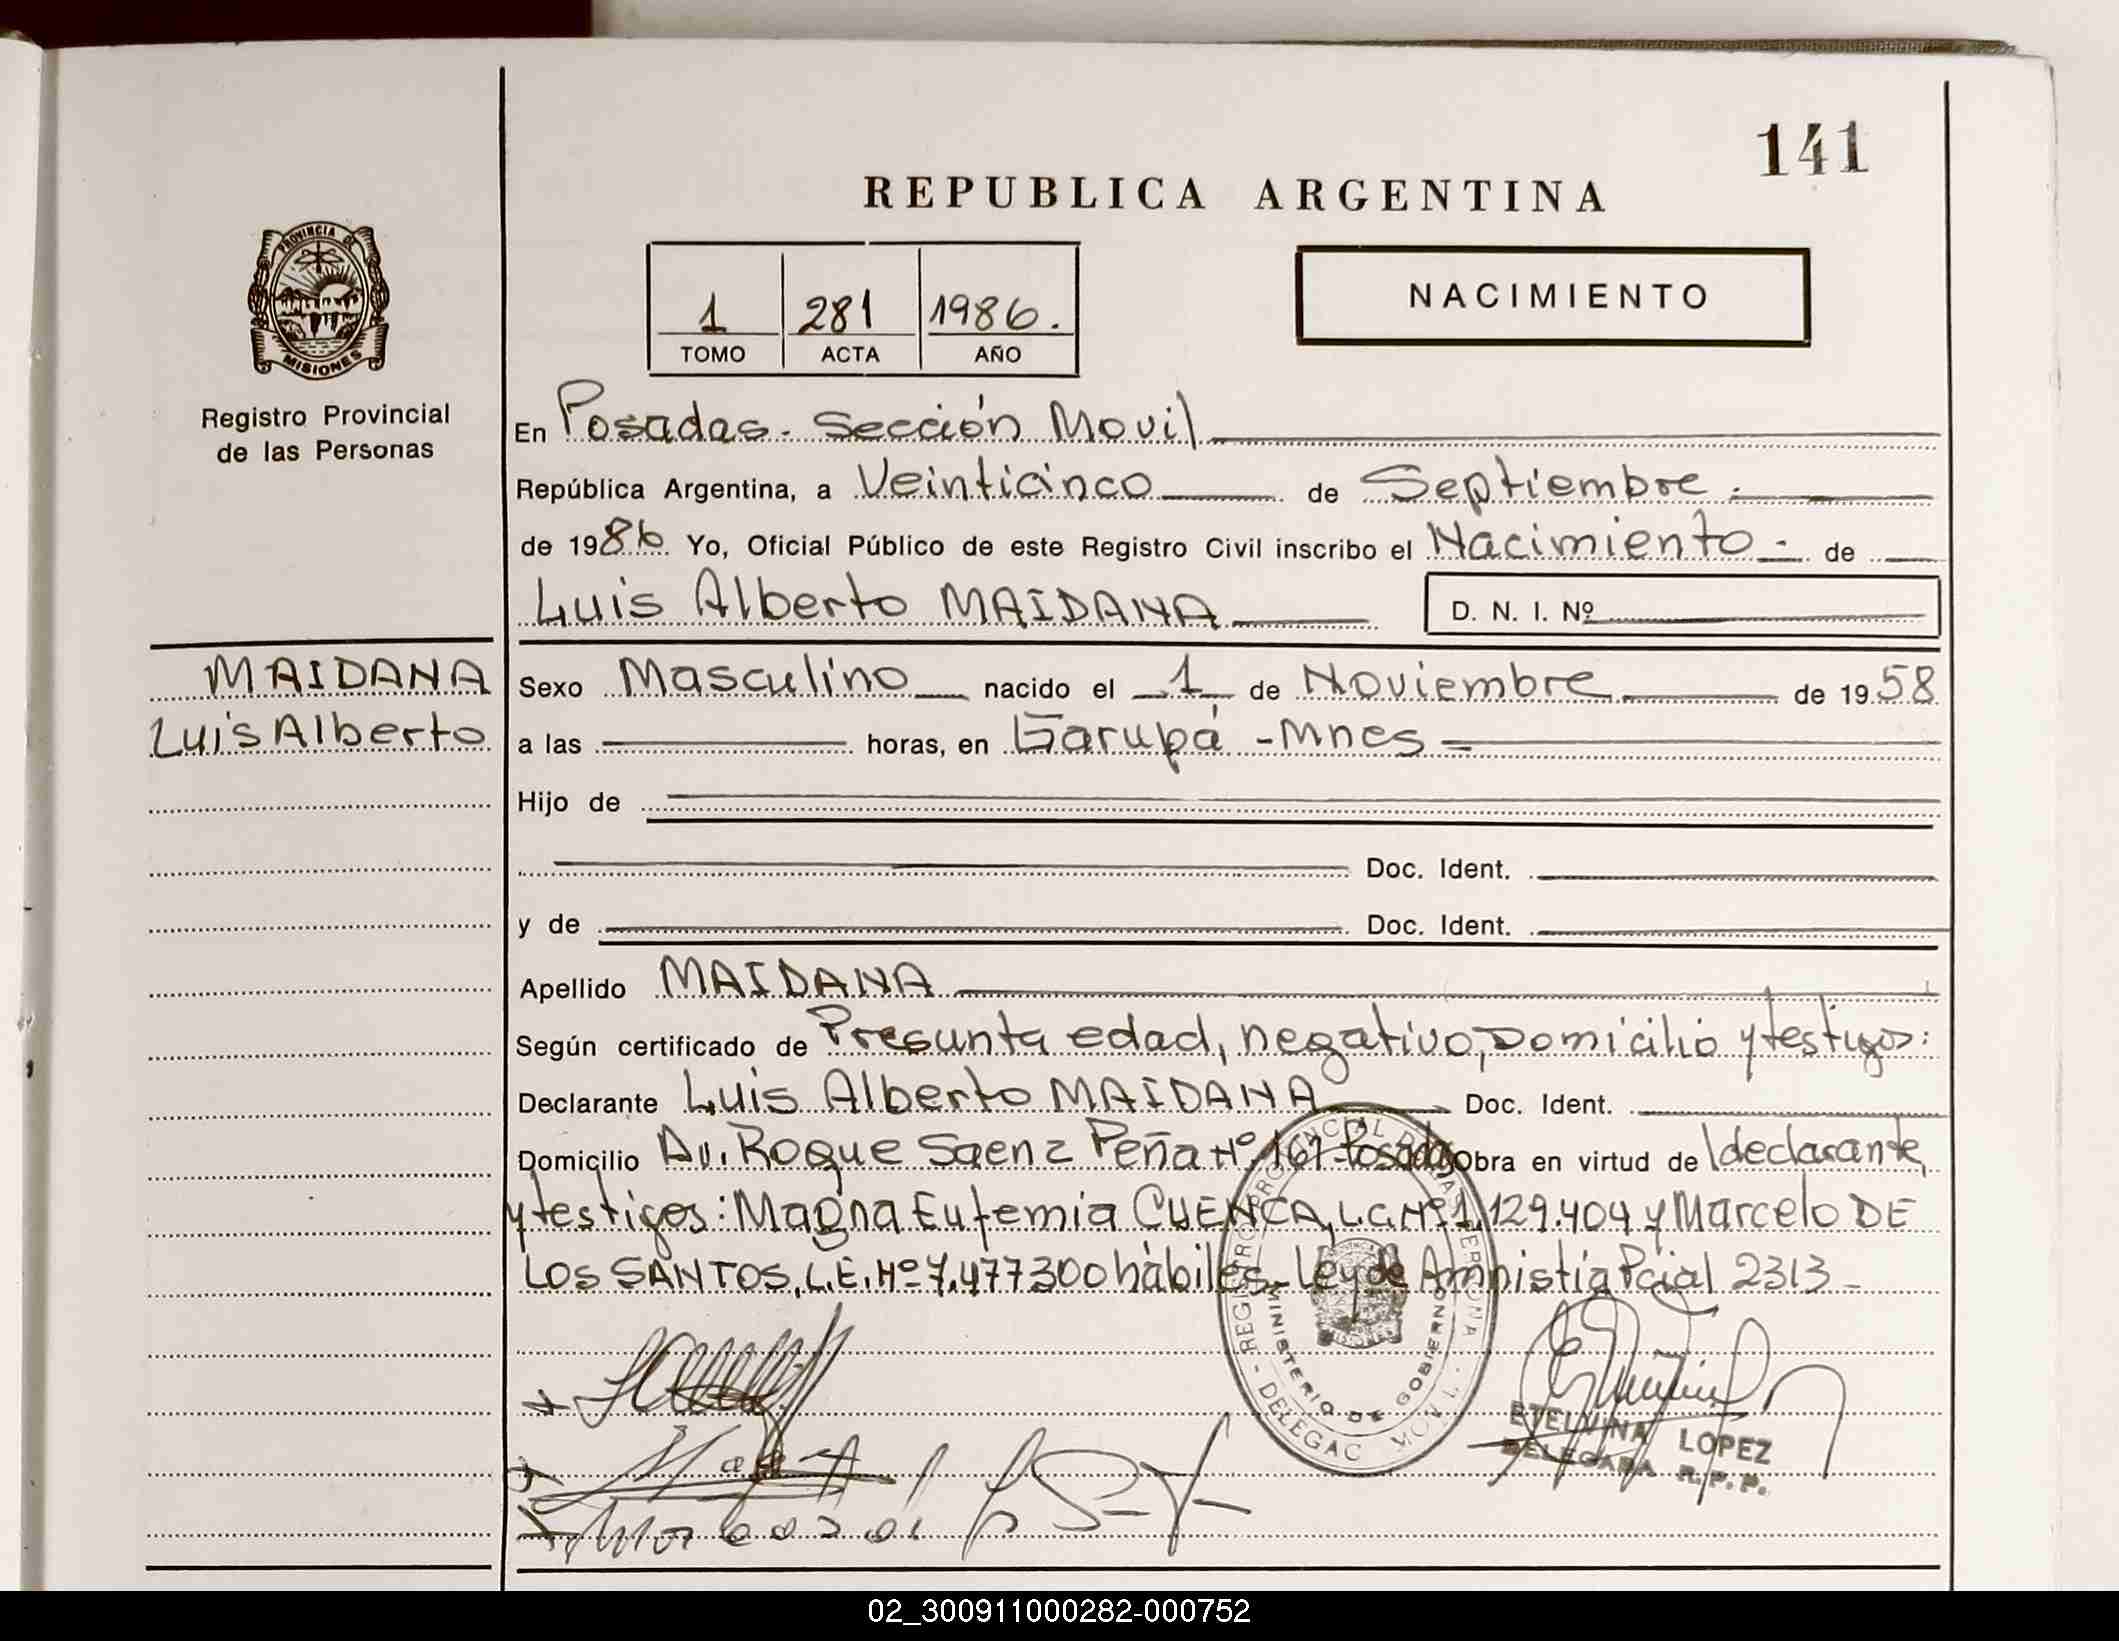 141
REPUBLICA ARGENTINA
PROVINCIA DE
MISIONES
Registro Provincial
de las Personas
1 281 1986.
TOMO ACTA AÑO
NACIMIENTO
En Posadas. Sección Movil
República Argentina, a Veinticinco de Septiembre.
de 1986 Yo, Oficial Público de este Registro Civil inscribo el Nacimiento. de
Luis Alberto MAIDANA D. N. I. Nº
MAIDANA
Luis Alberto
Sexo Masculino nacido el 1 de Noviembre de 1958
a las horas, en Garupá - Mnes
Hijo de
Doc. Ident.
y de Doc. Ident.
Apellido MAIDANA
Según certificado de Presunta edad, negativo, Domicilio y testigos:
Declarante Luis Alberto MAIDANA Doc. Ident.
Domicilio Av. Roque Saenz Peña Nº 167 - Posadas Obra en virtud de declarante,
y testigos: Magna Eufemia CUENCA, L.C. Nº 1.129.404 y Marcelo DE
LOS SANTOS, L.E. Nº 7.477300 hàbiles - Ley de Amnistía Pcial 2313 -
MINISTERIO DE GOBIERNO
ETELVINA LOPEZ
DELEGADA R.P.P.
02_300911000282-000752